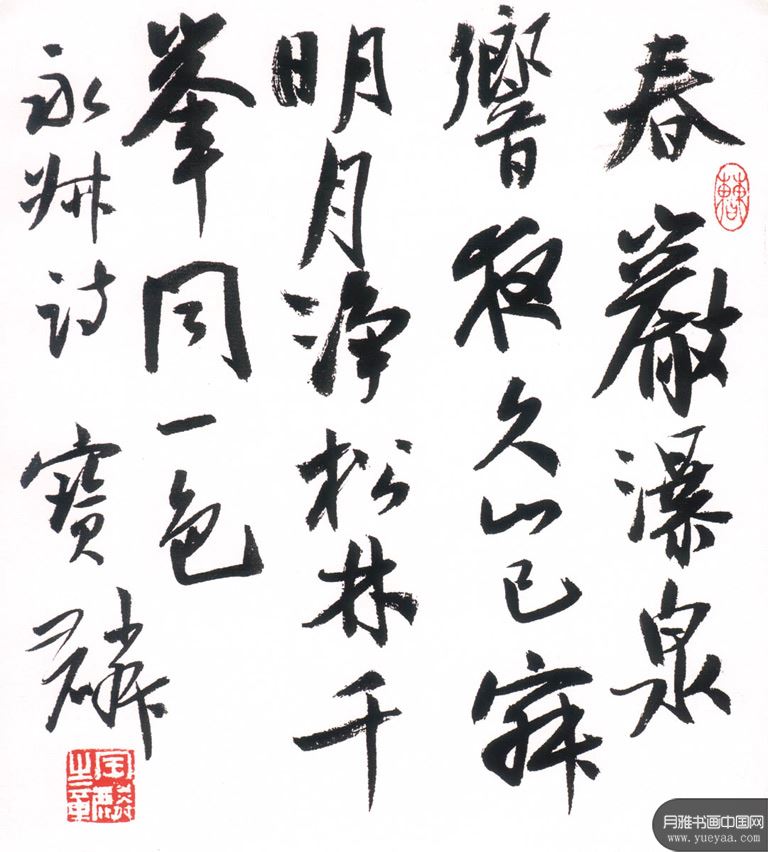 春巖瀑泉
響夜久山已寂
明月淨松林千
峯同一色
永叔诗 寶麟
月雅书画中国网
www.yueyaa.com